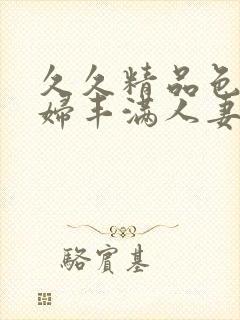 久久精品色
婦丰满人妻
駱賓基